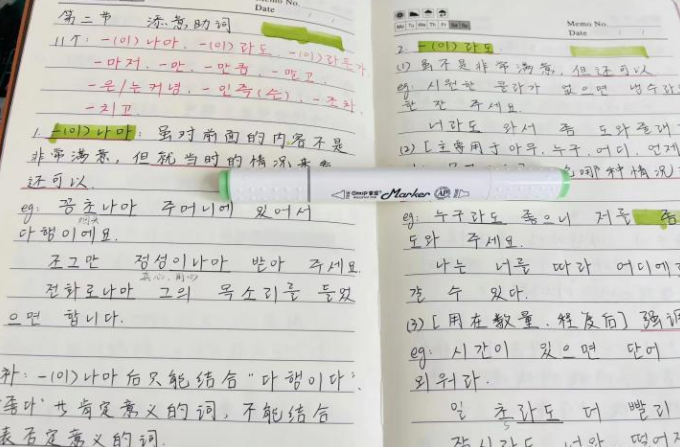 Memo No.
Date
第二节 添意助词
11个: -(이)나마. -(이)라도. -(이)라두가
-마저. -만. -만큼. -말고.
-은/는커녕. -인즉(슨). -조차
-치고.
1. -(이)나마: 虽对前面的内容不是
非常满意, 但就当时的情况来看
还可以.
eg: 꽁초나마 주머니에 있어서
烟头
다행이에요.
조그만 정성이나마 받아 주세요.
真心, 用心
전화로나마 그의 목소리를 들었
으면 합니다.
补: -(이)나마后只能结合"다행이다".
"좋다"共肯定意义的词, 不能结合
表否定意义的词.
Mo Tu We Th Fr Sa Su
Memo No.
Date
2. -(이)라도
(1) 虽不是非常满意, 但还可以
eg: 시원한 콜라가 없으면 냉수라
한 잔 주세요
너라도 와서 좀 도와줄래
(2) [主常用于아무, 누구, 어디, 언제
哪种情况
Marker
eg: 누구라도 좋으니 저를 좀
도와 주세요.
나는 너를 따라 어디에
갈 수 있다.
(3) [用在数量, 程度后] 强调
eg: 시간이 있으면 단어
외워라.
일 초라도 더 빨리